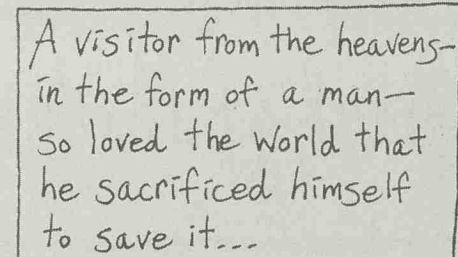 A visitor from the heavens—
in the form of a man—
so loved the world that
he sacrificed himself
to save it...